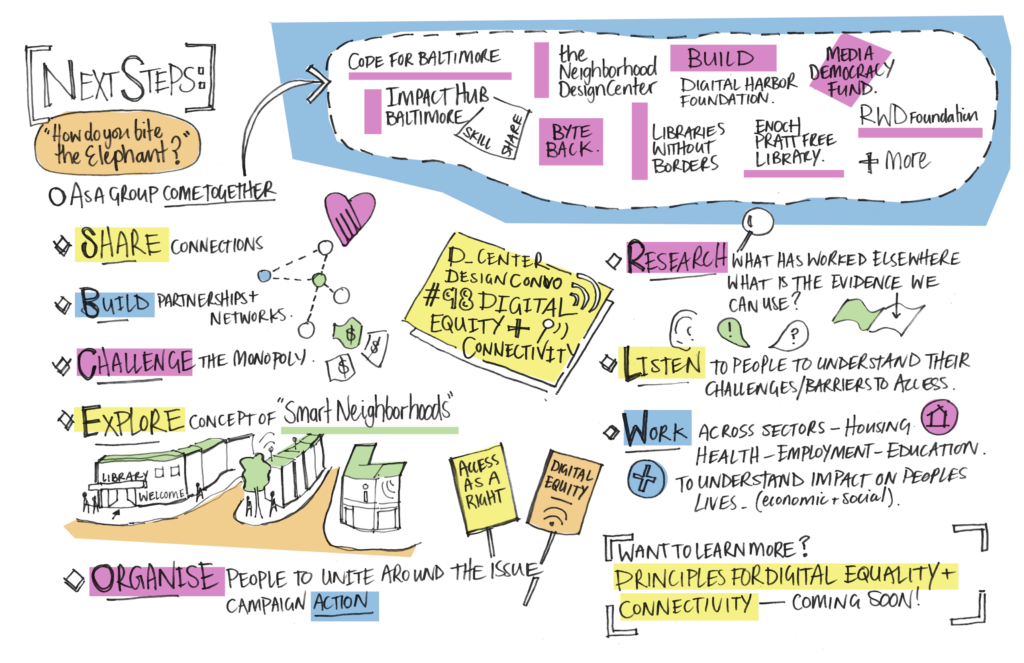 NEXT STEPS:
"How do you bite
the Elephant?"
AS A GROUP COME TOGETHER
CODE FOR BALTIMORE
IMPACT HUB
BALTIMORE
SKILL
SHARE
the
Neighborhood
Design Center
BYTE
BACK.
BUILD
DIGITAL HARBOR
FOUNDATION.
LIBRARIES
WITHOUT
BORDERS
ENOCH
PRATT FREE
LIBRARY.
MEDIA
DEMOCRACY
FUND.
RWD Foundation
+ More
SHARE CONNECTIONS
BUILD PARTNERSHIPS +
NETWORKS.
CHALLENGE THE MONOPOLY.
$
$
$
EXPLORE CONCEPT OF "Smart Neighborhoods"
LIBRARY
WELCOME
i
ORGANISE PEOPLE TO UNITE AROUND THE ISSUE
CAMPAIGN ACTION
D_CENTER
DESIGN CONVO
#98 DIGITAL
EQUITY +
CONNECTIVITY
ACCESS
AS A
RIGHT
DIGITAL
EQUITY
RESEARCH WHAT HAS WORKED ELSEWHERE
WHAT IS THE EVIDENCE WE
CAN USE?
!
?
LISTEN TO PEOPLE TO UNDERSTAND THEIR
CHALLENGES/BARRIERS TO ACCESS.
WORK ACROSS SECTORS - HOUSING
HEALTH - EMPLOYMENT - EDUCATION.
TO UNDERSTAND IMPACT ON PEOPLES
LIVES - (economic + social).
WANT TO LEARN MORE?
PRINCIPLES FOR DIGITAL EQUALITY +
CONNECTIVITY — COMING SOON!